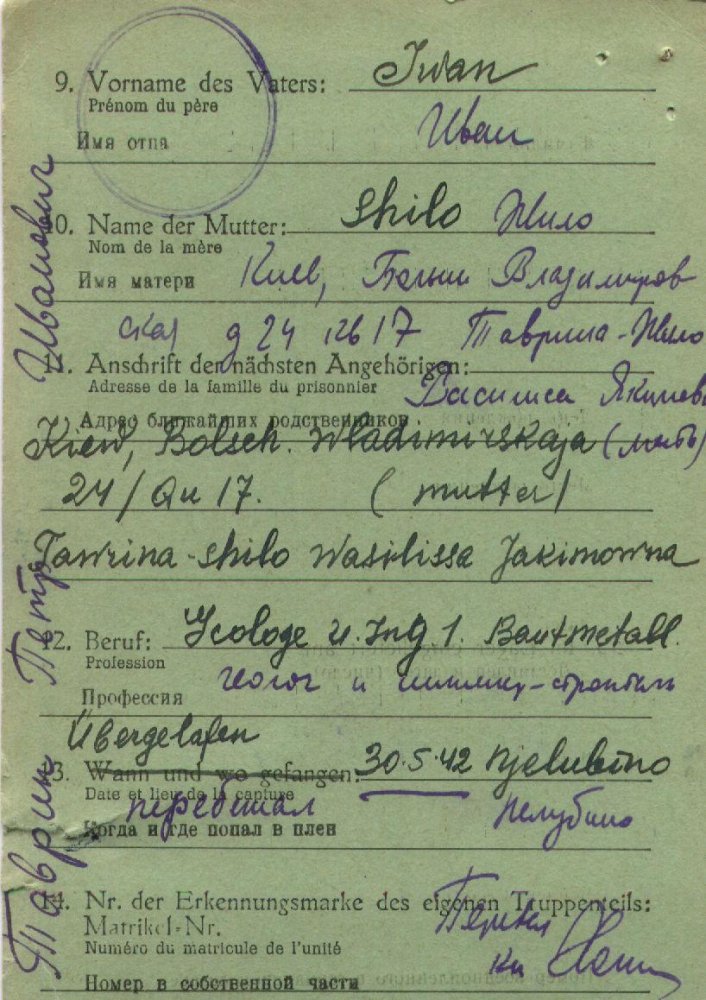 9. Vorname des Vaters: Iwan
Prénom du père
Имя отца Иван
10. Name der Mutter: Shilo Шило
Nom de la mère
Имя матери Киев, Больш Владимиров
ская д 24 кв 17 Таврина-Шило
11. Anschrift der nächsten Angehörigen:
Adresse de la famille du prisonnier Василиса Якимов
Адрес ближайших родственников
Kiew, Bolsch. Wladimirskaja (мать)
24/Qu 17. (mutter)
Tawrina-Shilo Wasilissa Jakimowna
12. Beruf: Geologe u. Ing f. Buntmetall.
Profession
геолог и
Профессия
Übergelafen
13. Wann und wo gefangen: 30.5.42 Njelubino
Date et lieu de la capture
перебежал Нелубино
Когда и где попал в плен
14. Nr. der Erkennungsmarke des eigenen Truppenteils:
Matrikel-Nr.
Numéro du matricule de l'unité
Номер в собственной части
Перевел
Таврин Петр Иванович